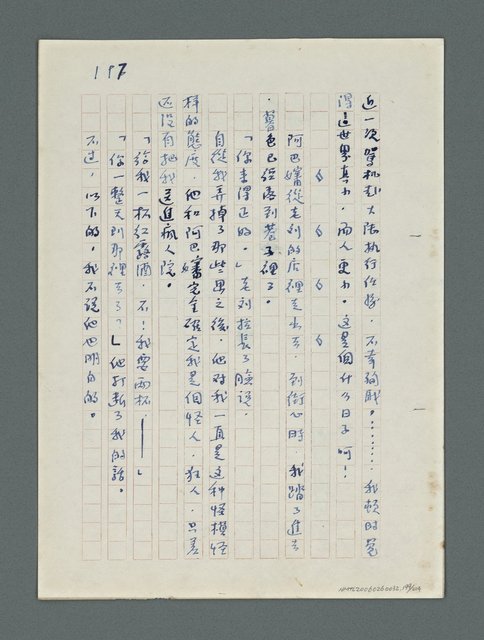 197
近一次駕机到大陸執行任務,不幸殉職。……我頓時覺
得這世界真小,而人更小。這是個什么日子呵!
阿巴嬸從老刘的店裡走出去,到街心時,我踏了進去
。暮色已經落到巷子裡了。
「你来得正好。」老刘拉長了臉說。
自從我弄掉了那些
之後,他對我一直是這种怪模怪
樣的態度,他和阿巴嬸完全確定我是個怪人、狂人,只差
还沒有把我送進瘋人院。
「給我一杯紅露酒,不!我要兩杯,——」
「你一整天到那裡去了?」他打斷了我的話。
不过,以下的,我不說他也明白的。
NMTL20060260032